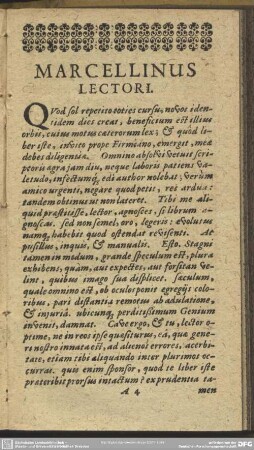 MARCELLINUS
LECTORI.
QVod sol repetito toties cursu, novos iden-
tidem dies creat, beneficium est illius
orbis, cuius motus cæterorum lex; & quòd li-
ber iste, invito prope Firmiano, emergit, meæ
debes diligentiæ. Omnino absolvi vetuit scri-
ptoris agra jam diu, neque laboris patiens va-
letudo, infectumq́, edi author nolebat; verùm
amico urgenti, negare quod petit, rei ardua:
tandem obtinui ut non lateret. Tibi me ali-
quid præstitisse, lector, agnosces, si librum co-
gnoscas. sed non semel, oro, legeris: evolutus
namq́, habebit quod ostendat revisenti. At
pusillus, inquis, & manualis. Esto. Stagni
tamen in modum, grande speculum est, plura
exhibens, quàm, aut expectes, aut forsitan ve-
lint, quibus imago sua displicet. sæculum,
quale omnino est, ob oculos ponit egregiis colo-
ribus, pari distantia remotus ab adulatione,
& injuriâ. ubicunq́, perditissimum Genium
invenit, damnat. Cave ergo, & tu, lector o-
ptime, ne in reos ipse quæsiturus, eâ, quæ gene-
ri nostro innata est, ad alienos errores, acerbi-
tate, etiam tibi aliquando inter plurimos oc-
currat. quis enim sponsor, quod te liber iste
præteribit prorsus intactum? ex prudentia ta-
A 4 men